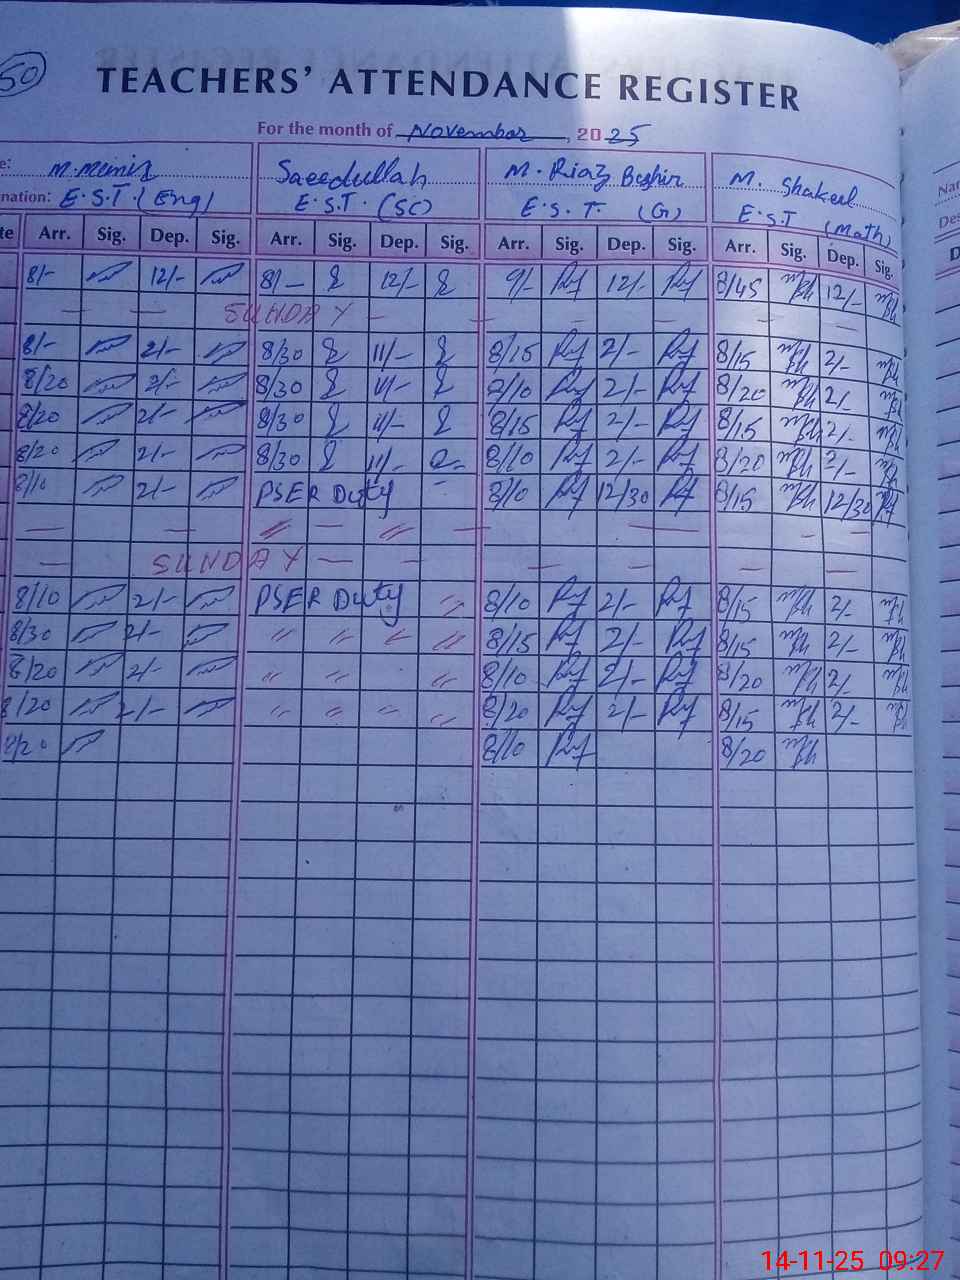 50
TEACHERS' ATTENDANCE REGISTER
For the month of November, 2025
e: M. Saeedullah M. Riaz Bashir M. Shakeel
nation: E.S.T. (Eng) E.S.T. (SC) E.S.T. (G) E.S.T (Math)
te Arr. Sig. Dep. Sig. Arr. Sig. Dep. Sig. Arr. Sig. Dep. Sig. Arr. Sig. Dep. Sig.
8/- 12/- 8/- 12/- 9/- 12/- 8/45 12/-
SUNDAY
8/- 2/- 8/30 11/- 8/15 2/- 8/15 2/-
8/20 2/- 8/30 11/- 8/10 2/- 8/20 2/-
8/20 2/- 8/30 11/- 8/15 2/- 8/15 2/-
8/20 2/- 8/30 11/- 8/10 2/- 8/20 2/-
8/10 2/- PSER Duty 8/10 12/30 8/15 12/30
SUNDAY
8/10 2/- PSER Duty 8/10 2/- 8/15 2/-
8/30 2/- " " " " 8/15 2/- 8/15 2/-
8/20 2/- " " " 8/10 2/- 8/20 2/-
8/20 2/- " " " " 8/20 2/- 8/15 2/-
8/20 8/10 8/20
Nar
Des
D
14-11-25 09:27